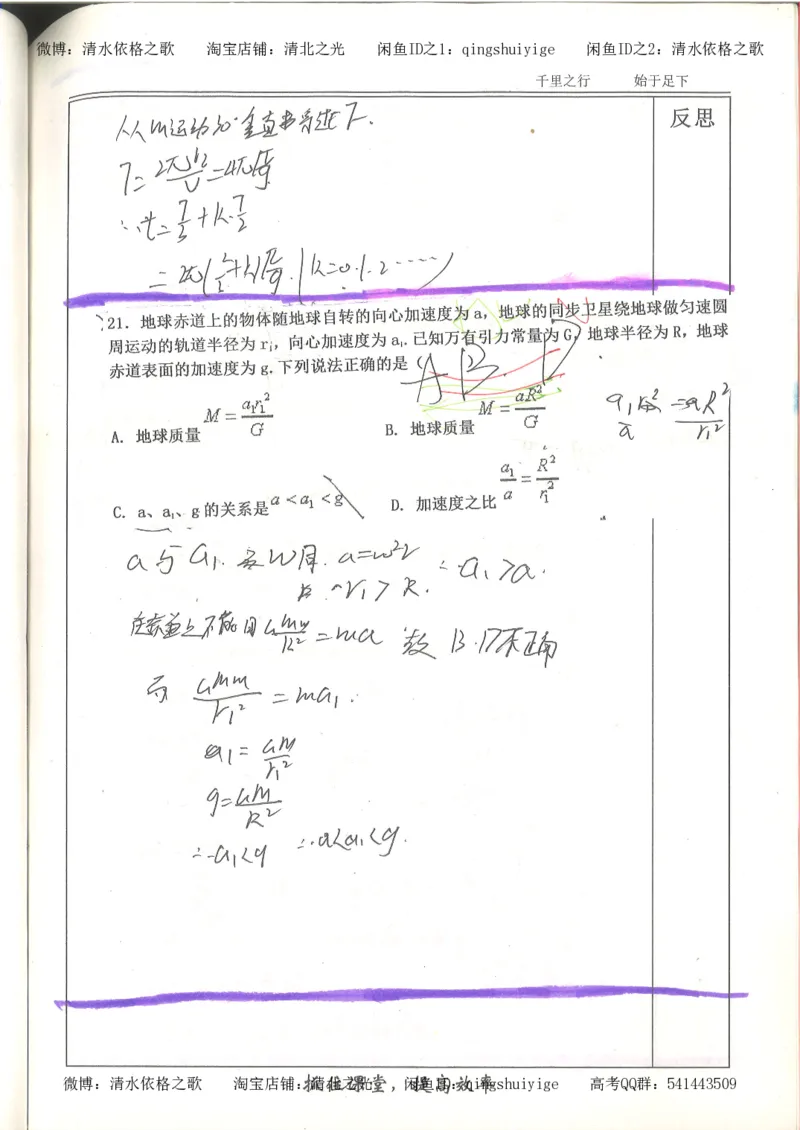 微博：清水依格之歌 淘宝店铺：清北之光 闲鱼ID之1：qingshuiyige 闲鱼ID之2：清水依格之歌
千里之行 始于足下
反思
∴t=T/2+k·T/2
(k=0.1.2……)
21. 地球赤道上的物体随地球自转的向心加速度为 a，地球的同步卫星绕地球做匀速圆
周运动的轨道半径为 r₁，向心加速度为 a₁.已知万有引力常量为 G，地球半径为 R，地球
赤道表面的加速度为 g.下列说法正确的是（
A B D
A. 地球质量 M=a₁r₁²/G B. 地球质量 M=aR²/G
C. a、a₁、g 的关系是 a<a₁<g D. 加速度之比 a₁/a=R²/r₁²
a 与 a₁. a=ω²r
r₁>R. ∴a₁>a.
GMm/R²=ma 故 B.D不正确
而 GMm/r₁²=ma₁.
a₁=GM/r₁²
g=GM/R²
∴a₁<g ∴a<a₁<g.
抓住课堂，提高效率
微博：清水依格之歌 淘宝店铺：清北之光 闲鱼ID：qingshuiyige 高考QQ群：541443509